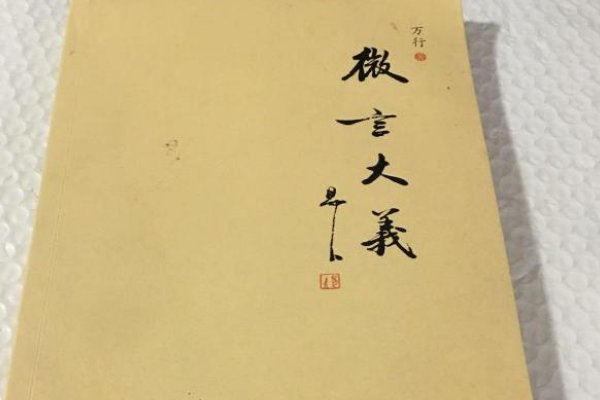 万行
微言大義